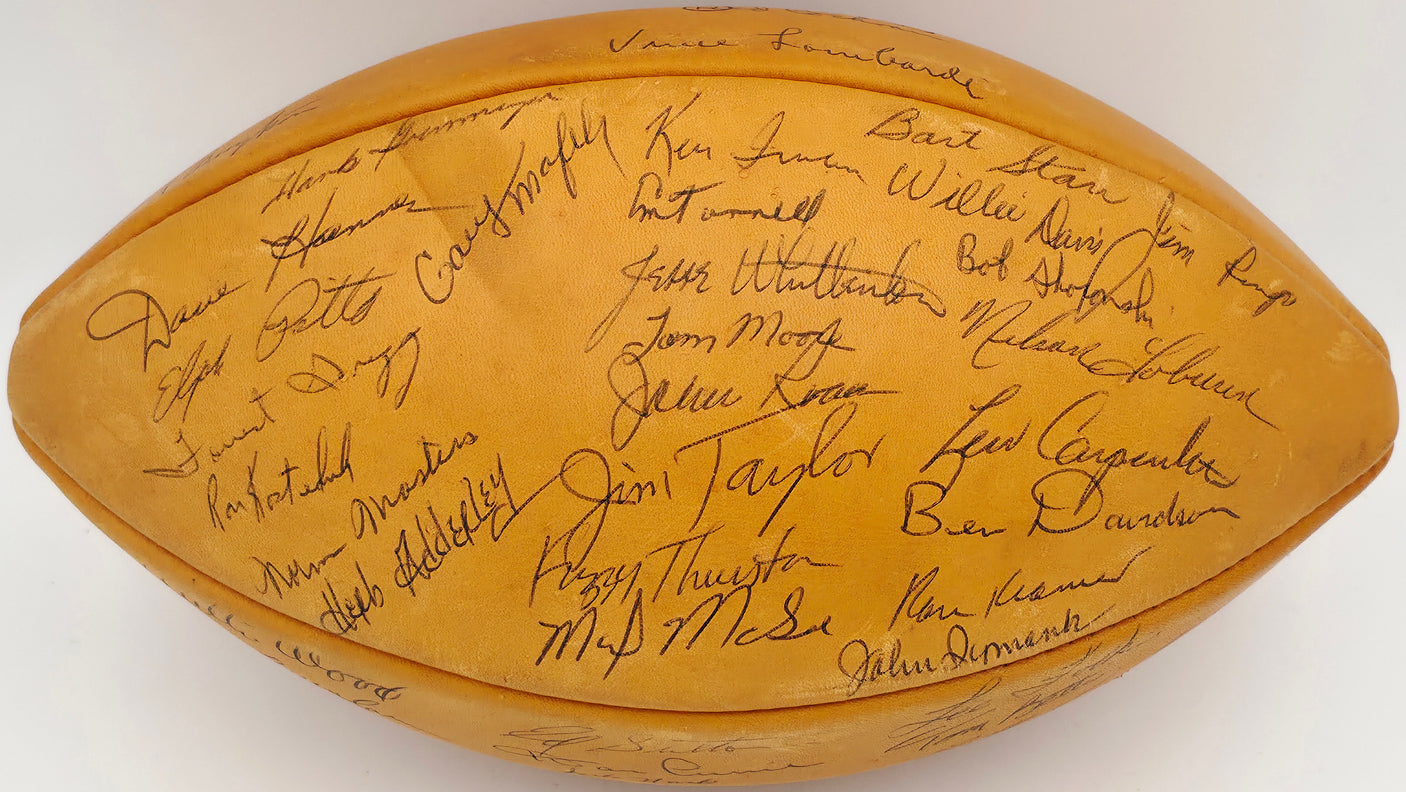 Vince Lombardi
Hank Gremminger
Dave Hanner
Elijah Pitts
Gary Knafelc
Forrest Gregg
Ron Kostelnik
Norm Masters
Herb Adderley
Ken Iman
Em Tunnell
Jesse Whittenton
Tom Moore
John Roach
Jim Taylor
Fuzzy Thurston
Max McGee
Bart Starr
Willie Davis
Jim Ringo
Bob Skoronski
Nelson Toburen
Lew Carpenter
Ben Davidson
Ron Kramer
John Symank
Willie Wood